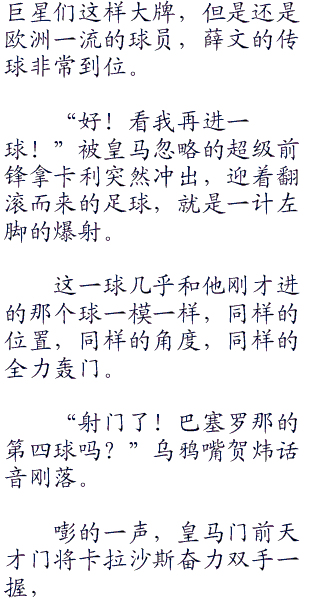 巨星们这样大牌，但是还是
欧洲一流的球员，薛文的传
球非常到位。
“好！看我再进一
球！”被皇马忽略的超级前
锋拿卡利突然冲出，迎着翻
滚而来的足球，就是一计左
脚的爆射。
这一球几乎和他刚才进
的那个球一模一样，同样的
位置，同样的角度，同样的
全力轰门。
“射门了！巴塞罗那的
第四球吗？”乌鸦嘴贺炜话
音刚落。
嘭的一声，皇马门前天
才门将卡拉沙斯奋力双手一
握，